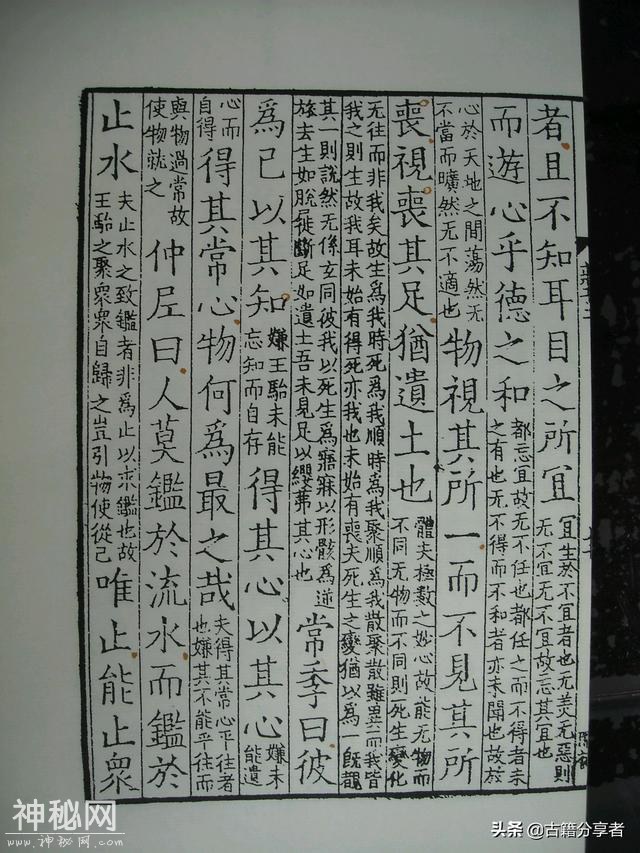 者且不知耳目之所宜
宜生於不宜者也无美无惡則
无不宜无不宜故忘其宜也
而遊心乎德之和
都忘宜故无不任也都任之而不得者未
之有也无不得而不和者亦未聞也故放
心於天地之間蕩然无
不當而曠然无不適也
物視其所一而不見其所
喪視喪其足猶遺土也
體夫極數之妙心故能无物而
不同无物而不同則死生變化
无往而非我矣故生爲我時死爲我順時爲我聚順爲我散聚散雖異而我皆
我之則生故我耳未始有得死亦我也未始有喪夫死生之變猶以爲一既覩
其一則說然无係玄同彼我以死生爲寤寐以形骸爲逆
旅去生如脫屣斷足如遺土吾未見足以纓茀其心也
常季曰彼
爲己以其知
嫌王駘未能
忘知而自存
得其心以其心
嫌未
能遺
心而
自得
得其常心物何爲最之哉
夫得其常心平往者
也嫌其不能平往而
與物過常故
使物就之
仲尼曰人莫鑑於流水而鑑於
止水
夫止水之致鑑者非爲止以求鑑也故
王駘之聚衆衆自歸之豈引物使從己
唯止能止衆
神秘网
www.神秘网.com
头条 @古籍分享者